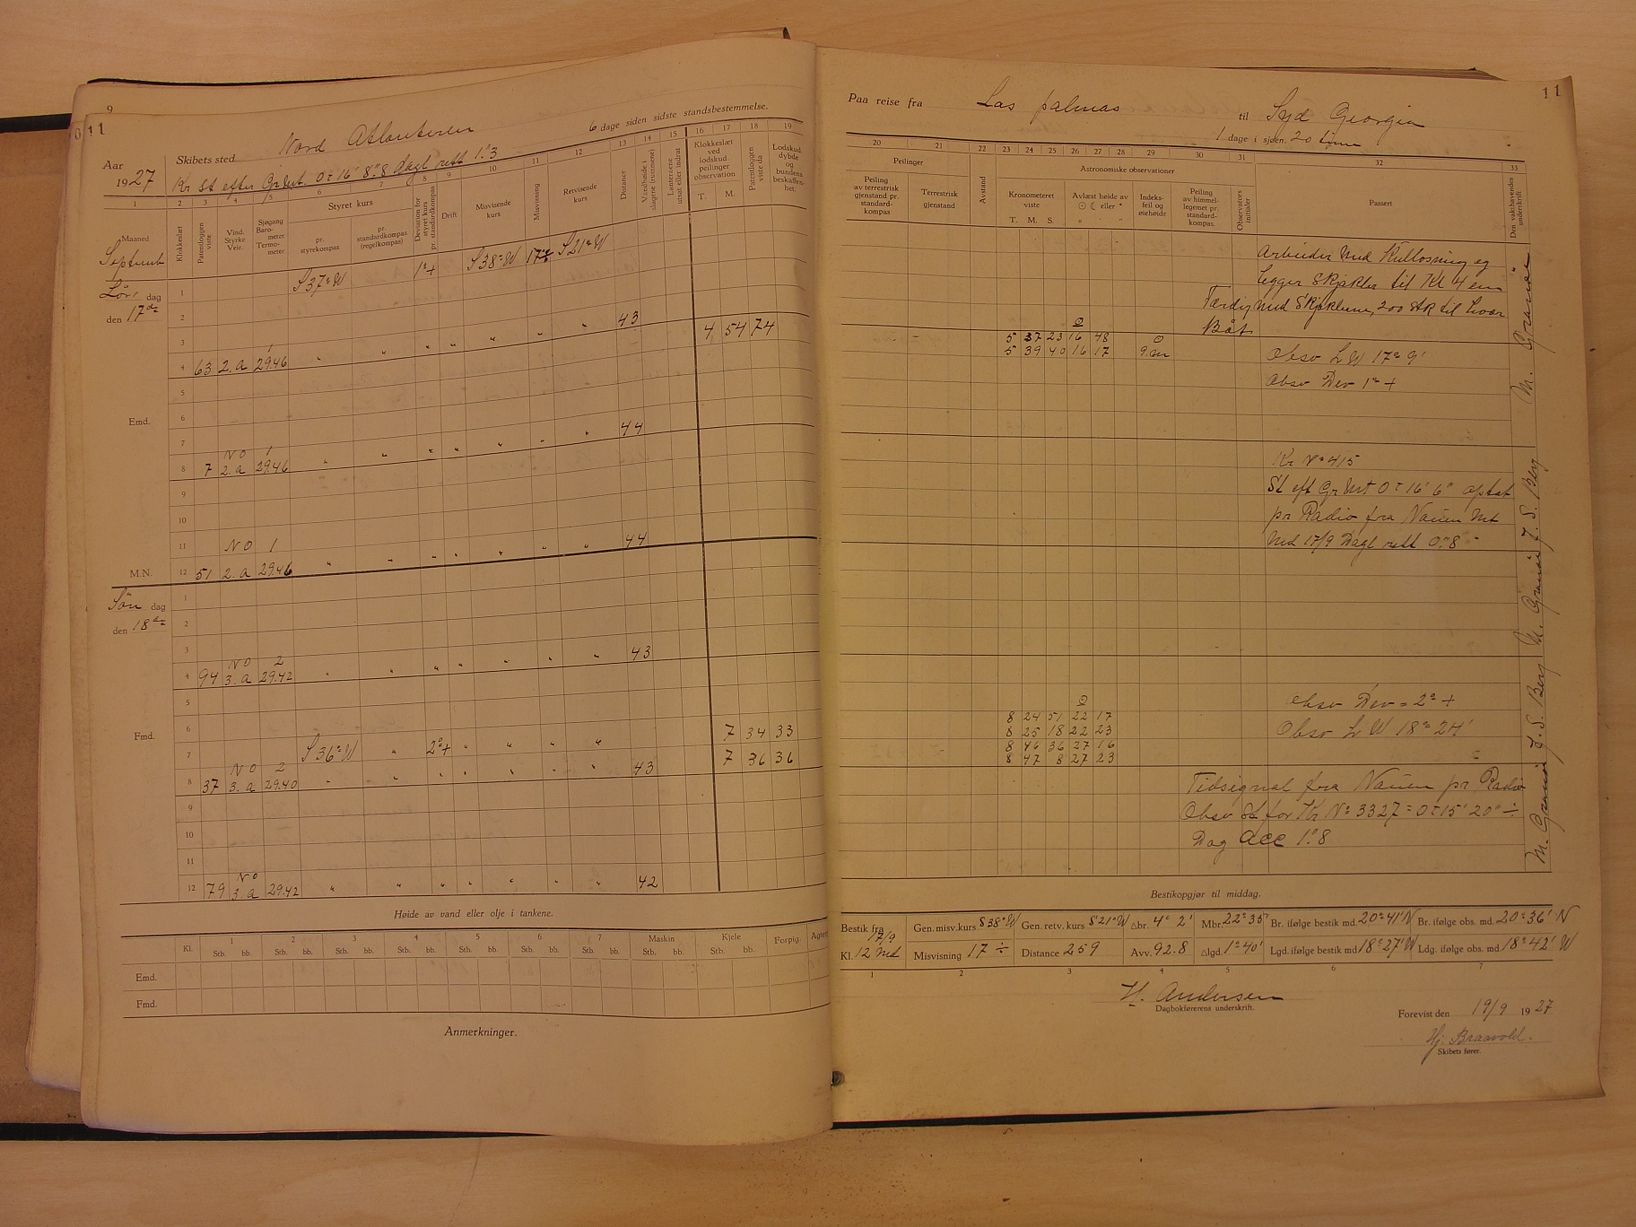 9
11
Nord Atlanteren
6 dage siden sidste standsbestemmelse.
Aar 1927
Skibets sted
Kr St efter Gr Mt. 0= 16' 8"8 Dagl rett 1".3
1 2 3 4 5 6 7 8 9 10 11 12 13 14 15 16 17 18 19
Maaned
Klokkeslæt
Patentloggen viste
Vind. Styrke Veir.
Sjøgang Barometer Termometer
Styret kurs
pr. styrekompas
pr. standardkompas (regelkompas)
Deviation for styret kurs pr. standardkompas
Drift
Misvisende kurs
Misvisning
Retvisende kurs
Distance
Vandhøide i slagene (rummene)
Lanternene utsat eller indtat
Klokkeslæt ved lodskud peilinger observation
T. M.
Patentloggen viste da
Lodskud dybde og bundens beskaffenhet.
Septembr
Lør dag
den 17de
S 37° W 1°+ S 38° W 17 ÷ S 21° W
1
2
3
4 63 2. a 1 29.46 " " " " " " " 43 4 54 74
5
Emd.
6
7
8 7 NO 2. a 1 29.46 " " " " " " " 44
9
10
11
M.N.
12 51 NO 2. a 1 29.46 " " " " " " " 44
Søn dag
den 18de
1
2
3
4 94 NO 3. a 2 29.42 " " " " " " " 43
5
Fmd.
6 7 34 33
7 S 36° W " 2°+ " " " " " 7 36 36
8 37 NO 3. a 2 29.40 " " " " " " " 43
9
10
11
12 79 NO 3. a 29.42 " " " " " " " 42
Høide av vand eller olje i tankene.
Kl. 1 2 3 4 5 6 7 Maskin Kjele Forpig. Agterp
Stb. bb. Stb. bb. Stb. bb. Stb. bb. Stb. bb. Stb. bb. Stb. bb. Stb. bb. Stb. bb.
Emd.
Fmd.
Anmerkninger.
11
Paa reise fra Las palmas til Syd Georgia
1 dage i sjøen. 20 timer
20 21 22 23 24 25 26 27 28 29 30 31 32 33
Peilinger
Astronomiske observationer
Peiling av terrestrisk gjenstand pr. standardkompas
Terrestrisk gjenstand
Avstand
Kronometeret viste
T. M. S.
Avlæst høide av ☉ ☾ eller *
Indeksfeil og øiehøide
Peiling av himmellegemet pr. standardkompas.
Observators initialer
Passert
Den vakthavendes underskrift
Arbeider med Kullosning og
legger Skjekler til Kl 4 em
Færdig med Skjeklene, 200 stk til hver
Båt
5 37 23 16 48
5 39 40 16 17 9. m
Obsv L W 17° 9'
Obsv Dev 1° +
Kr No 415
St eft Gr Mt 0= 16' 6" optat
pr Radio fra Nauen Mt
Med 17/9 Dagl rett 0".8
Obsv Dev = 2° +
8 24 51 22 17
8 25 18 22 23
8 46 36 27 16
8 47 8 27 23
Obsv L W 18° 24'
Tidsignal fra Nauen pr Radio
Obsv St for Kr No 3327 = 0= 15' 20" ÷
Dag acc 1".8
Bestikopgjør til middag.
Bestik fra 17/9 Kl. 12 Md
Gen. misv. kurs S 38° W
Gen. retv. kurs S 21° W
△br. 4° 2'
Mbr. 22° 35'
Br. ifølge bestik md. 20° 41' N
Br. ifølge obs. md. 20° 36' N
Misvisning 17 ÷
Distance 259
Avv. 92.8
△lgd. 1° 40'
Lgd. ifølge bestik md 18° 27' W
Ldg. ifølge obs. md 18° 42' W
1 2 3 4 5 6 7
H. Andersen
Dagbokførerens underskrift.
Forevist den 19/9 1927
Hj. Braavold.
Skibets fører.